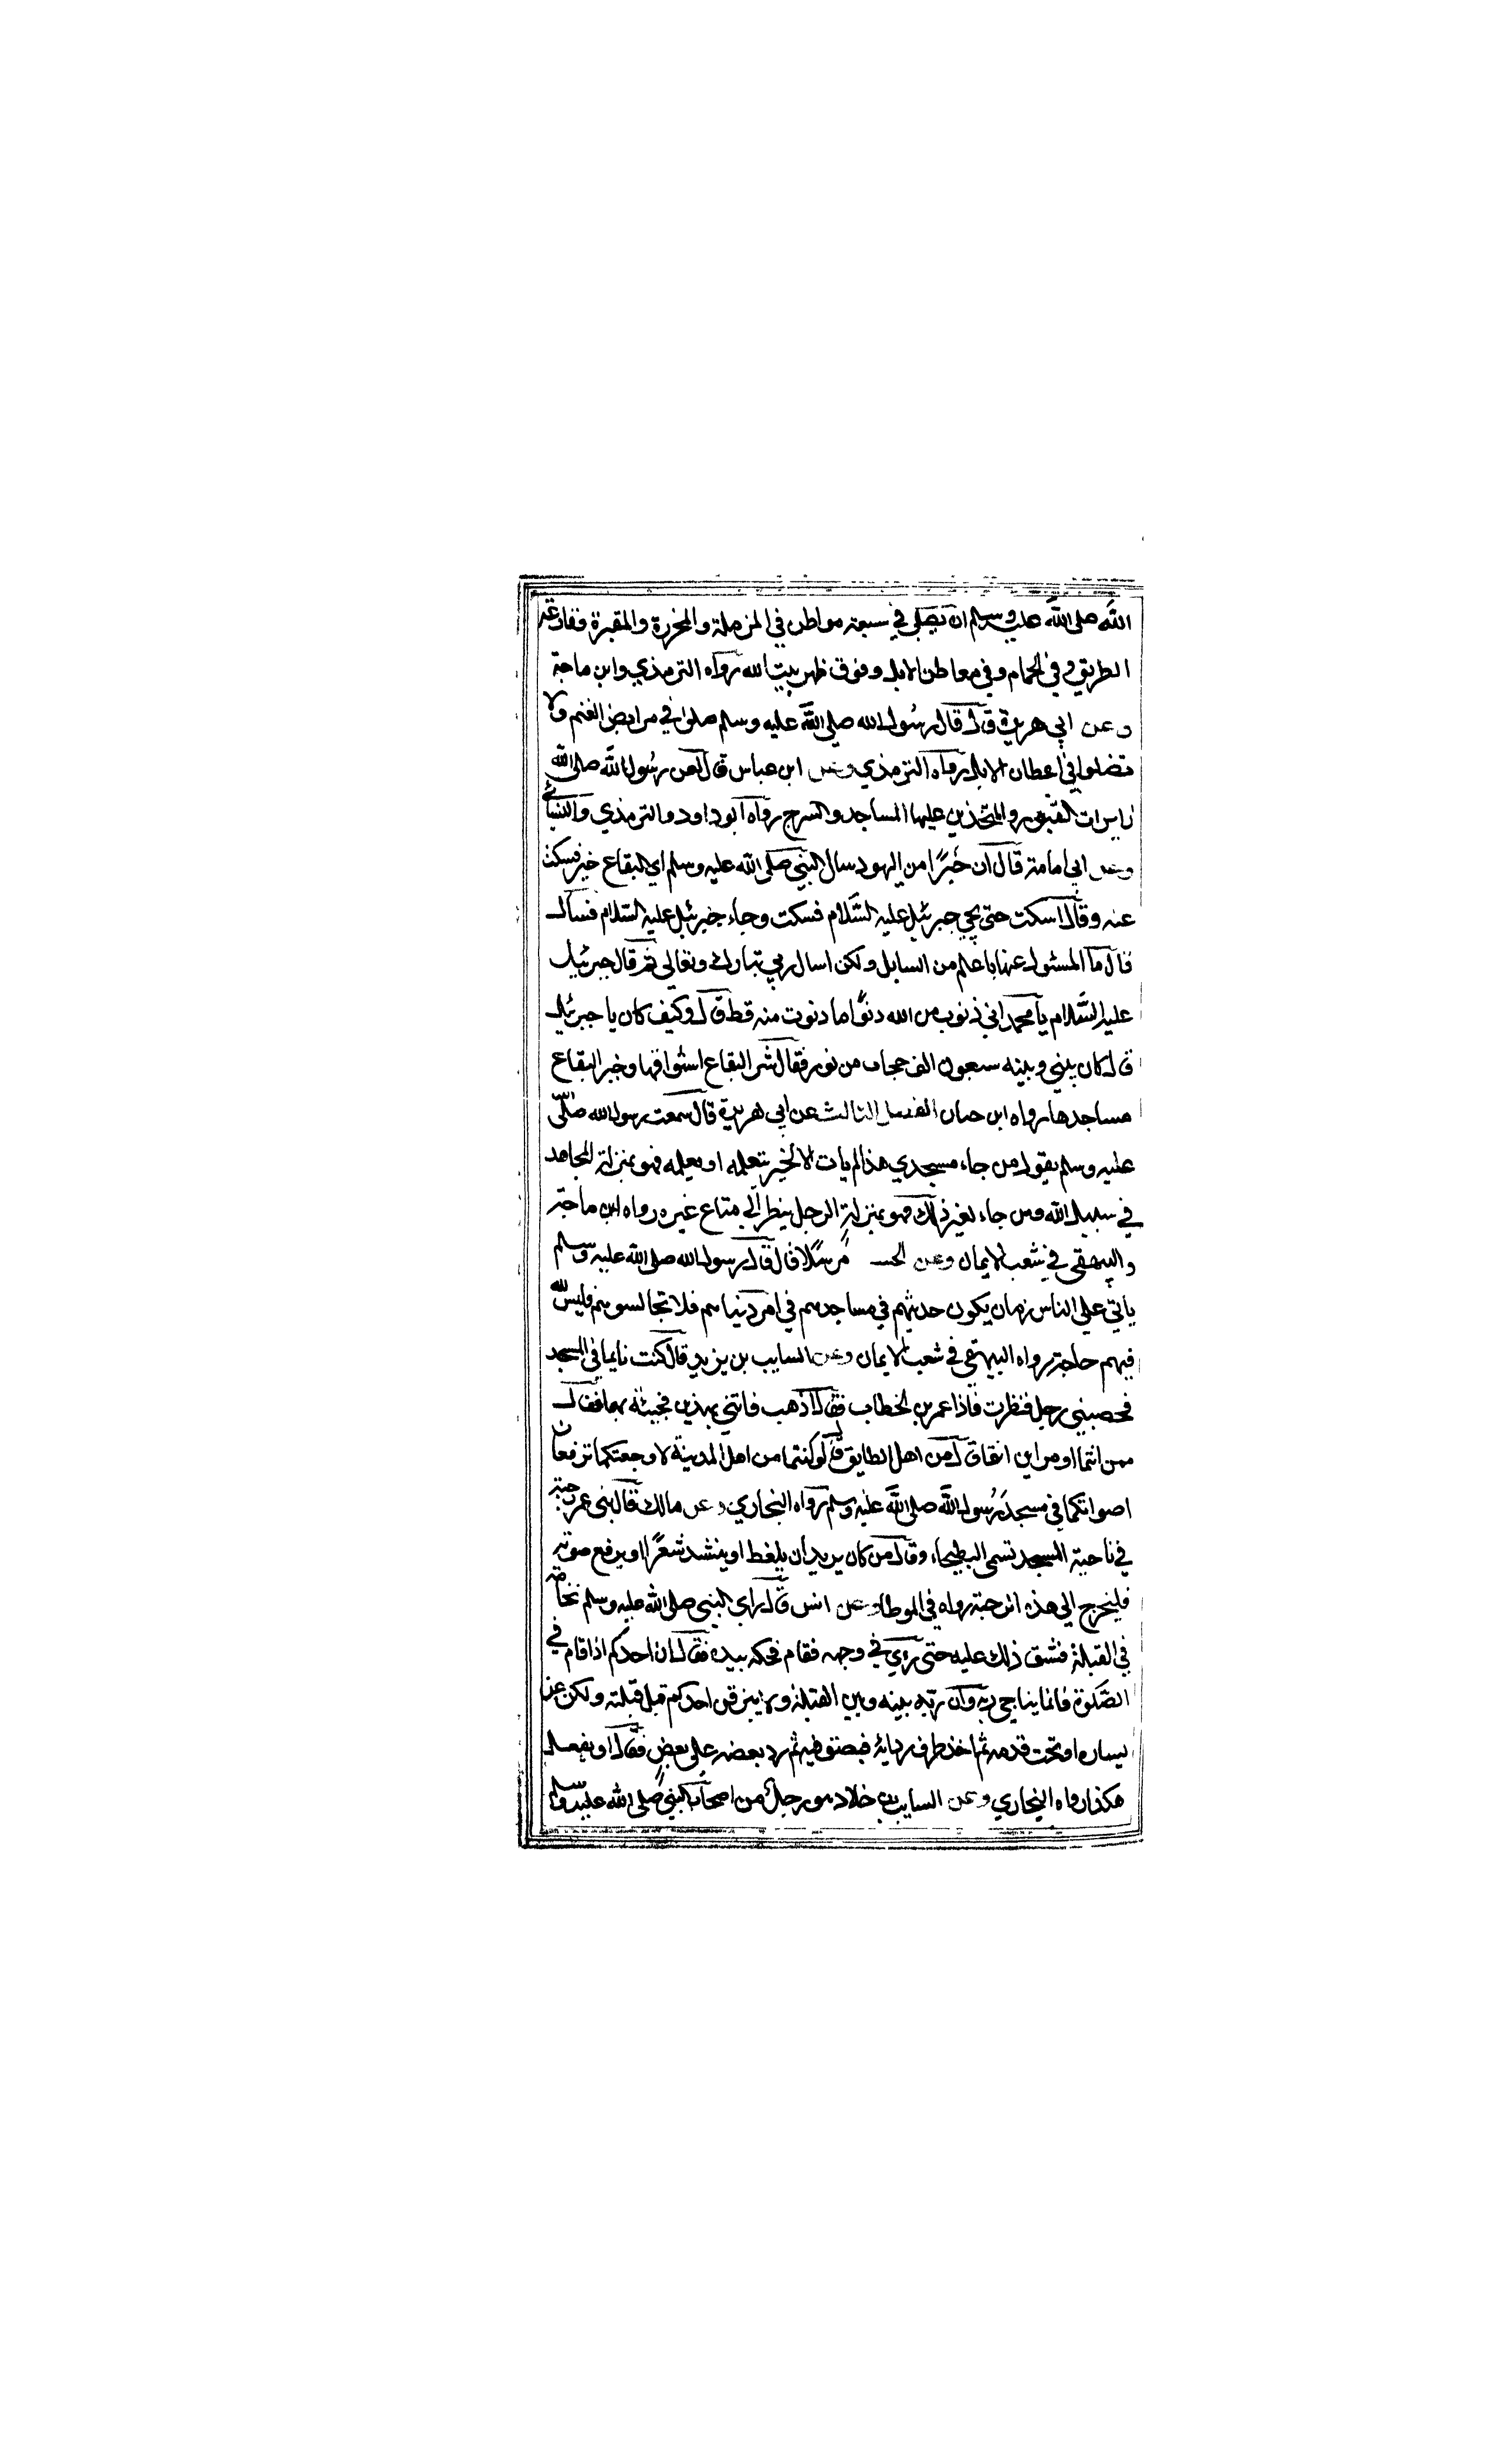 الله صلى الله عليه وسلم ان يصلى في سبعة مواطن في المزبلة والمجزرة والمقبرة وقارعة
الطريق وفي الحمام وفي معاطن الابل وفوق ظهر بيت الله رواه الترمذي وابن ماجة
وعن ابي هريرة قال قال رسول الله صلى الله عليه وسلم صلوا في مرابض الغنم ولا
تصلوا في اعطان الابل رواه الترمذي وعن ابن عباس قال لعن رسول الله صلى الله
زايرات القبور والمتخذين عليها المساجد والسرج رواه ابو داود والترمذي والنسائي
وعن ابي امامة قال ان حبرًا من اليهود سال النبي صلى الله عليه وسلم اي البقاع خير فسكت
عنه وقال اسكت حتى يجي جبرئيل عليه السلام فسكت وجاء جبرئيل عليه السلام فسال
قال ما المسئول عنها باعلم من السايل ولكن اسال ربي تبارك وتعالى ثم قال جبرئيل
عليه السلام يا محمد اني دنوت من الله دنوًا ما دنوت منه قط قال وكيف كان يا جبرئيل
قال كان بيني وبينه سبعون الف حجاب من نور فقال شر البقاع اسواقها وخير البقاع
مساجدها رواه ابن حبان الفصل الثالث عن ابي هريرة قال سمعت رسول الله صلى
عليه وسلم يقول من جاء مسجدي هذا لم يات الا لخير يتعلمه او يعلمه فهو بمنزلة المجاهد
في سبيل الله ومن جاء لغير ذلك فهو بمنزلة الرجل ينظر الى متاع غيره رواه ابن ماجة
والبيهقي في شعب الايمان وعن الحسن مرسلًا قال قال رسول الله صلى الله عليه وسلم
ياتي على الناس زمان يكون حديثهم في مساجدهم في امر دنياهم فلا تجالسوهم فليس لله
فيهم حاجة رواه البيهقي في شعب الايمان وعن السايب بن يزيد قال كنت نايما في المسجد
فحصبني رجل فنظرت فاذا عمر بن الخطاب فقال اذهب فاتني بهذين فجيته بهما فقال
ممن انتما او من اين انتما قالا من اهل الطايف قال لو كنتما من اهل المدينة لاوجعتكما ترفعان
اصواتكما في مسجد رسول الله صلى الله عليه وسلم رواه البخاري وعن مالك قال بنى عمر رحبة
في ناحية المسجد تسمى البطيحاء وقال من كان يريد ان يلغط او ينشد شعرًا او يرفع صوته
فليخرج الى هذه الرحبة رواه في الموطا وعن انس قال راى النبي صلى الله عليه وسلم نخامة
في القبلة فشق ذلك عليه حتى رؤي في وجهه فقام فحكه بيده فقال ان احدكم اذا قام في
الصلوة فانما يناجي ربه وان ربه بينه وبين القبلة ولا يبزقن احدكم قبل قبلته ولكن عن
يساره او تحت قدمه ثم اخذ طرف ردايه فبصق فيه ثم رد بعضه على بعض فقال او يفعل
هكذا رواه البخاري وعن السايب بن خلاد هو رجل من اصحاب النبي صلى الله عليه وسلم